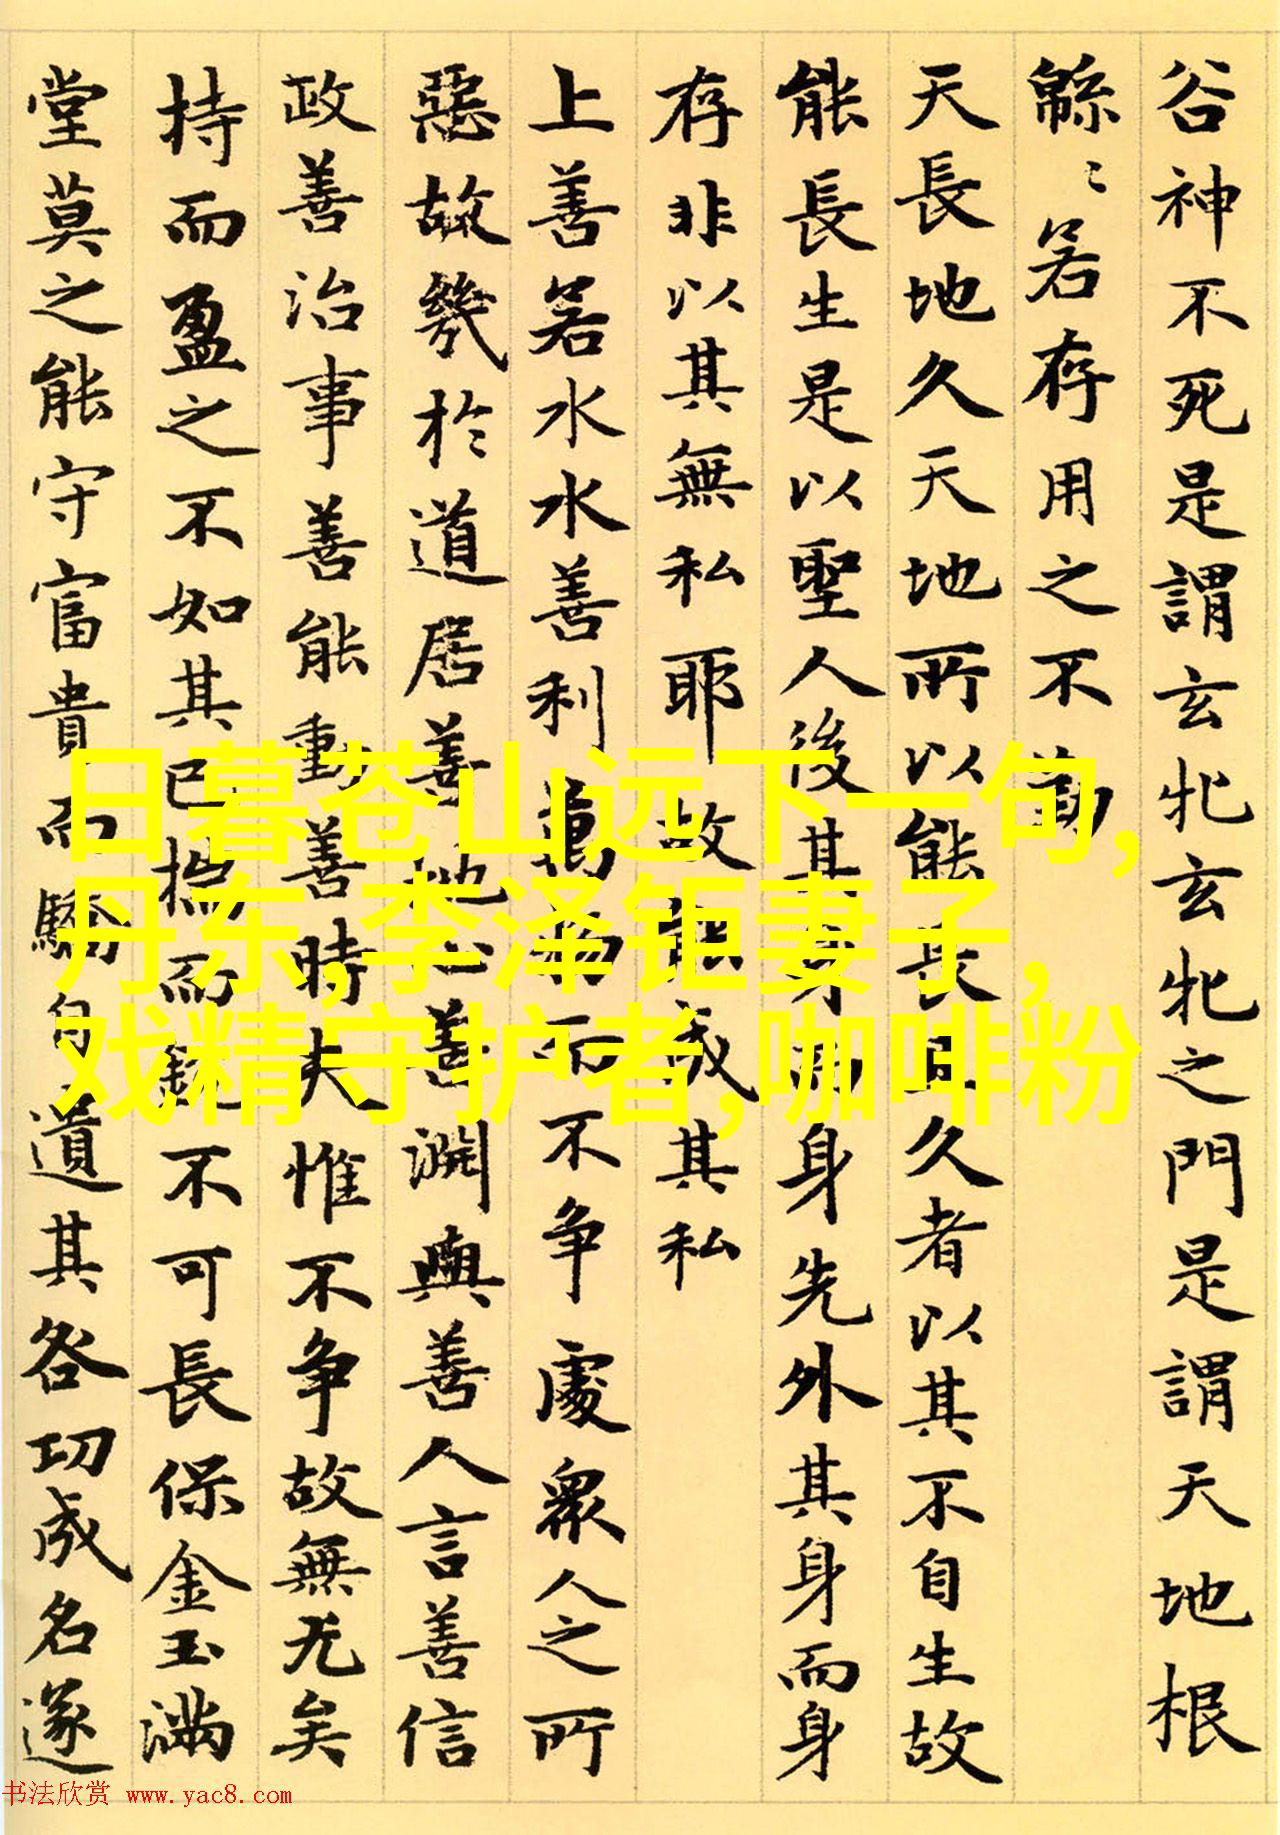 谷神不死是謂玄牝玄牝之門是謂天地根
緜〻若存用之不勤
天長地久天地所以能長且久者以其不自生故
能長生是以聖人後其身而身先外其身而身
存非以其無私耶故能成其私
上善若水水善利萬物而不争處衆人之所
惡故幾於道居善地心善淵與善人言善信
政善治事善能動善時夫惟不争故無尤矣
持而盈之不如其已揣而銳不可長保金玉滿
堂莫之能守富貴而驕自遺其咎功成名遂
日暮苍山远下一句,
丹东,李泽钜妻子,
戏精守护者,咖啡粉
书法欣赏 www.yac8.com